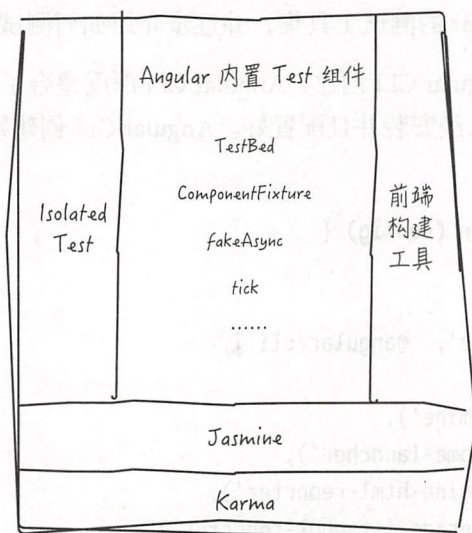 Angular 内置 Test 组件
TestBed
ComponentFixture
fakeAsync
tick
……
Isolated
Test
前端
构建
工具
Jasmine
Karma